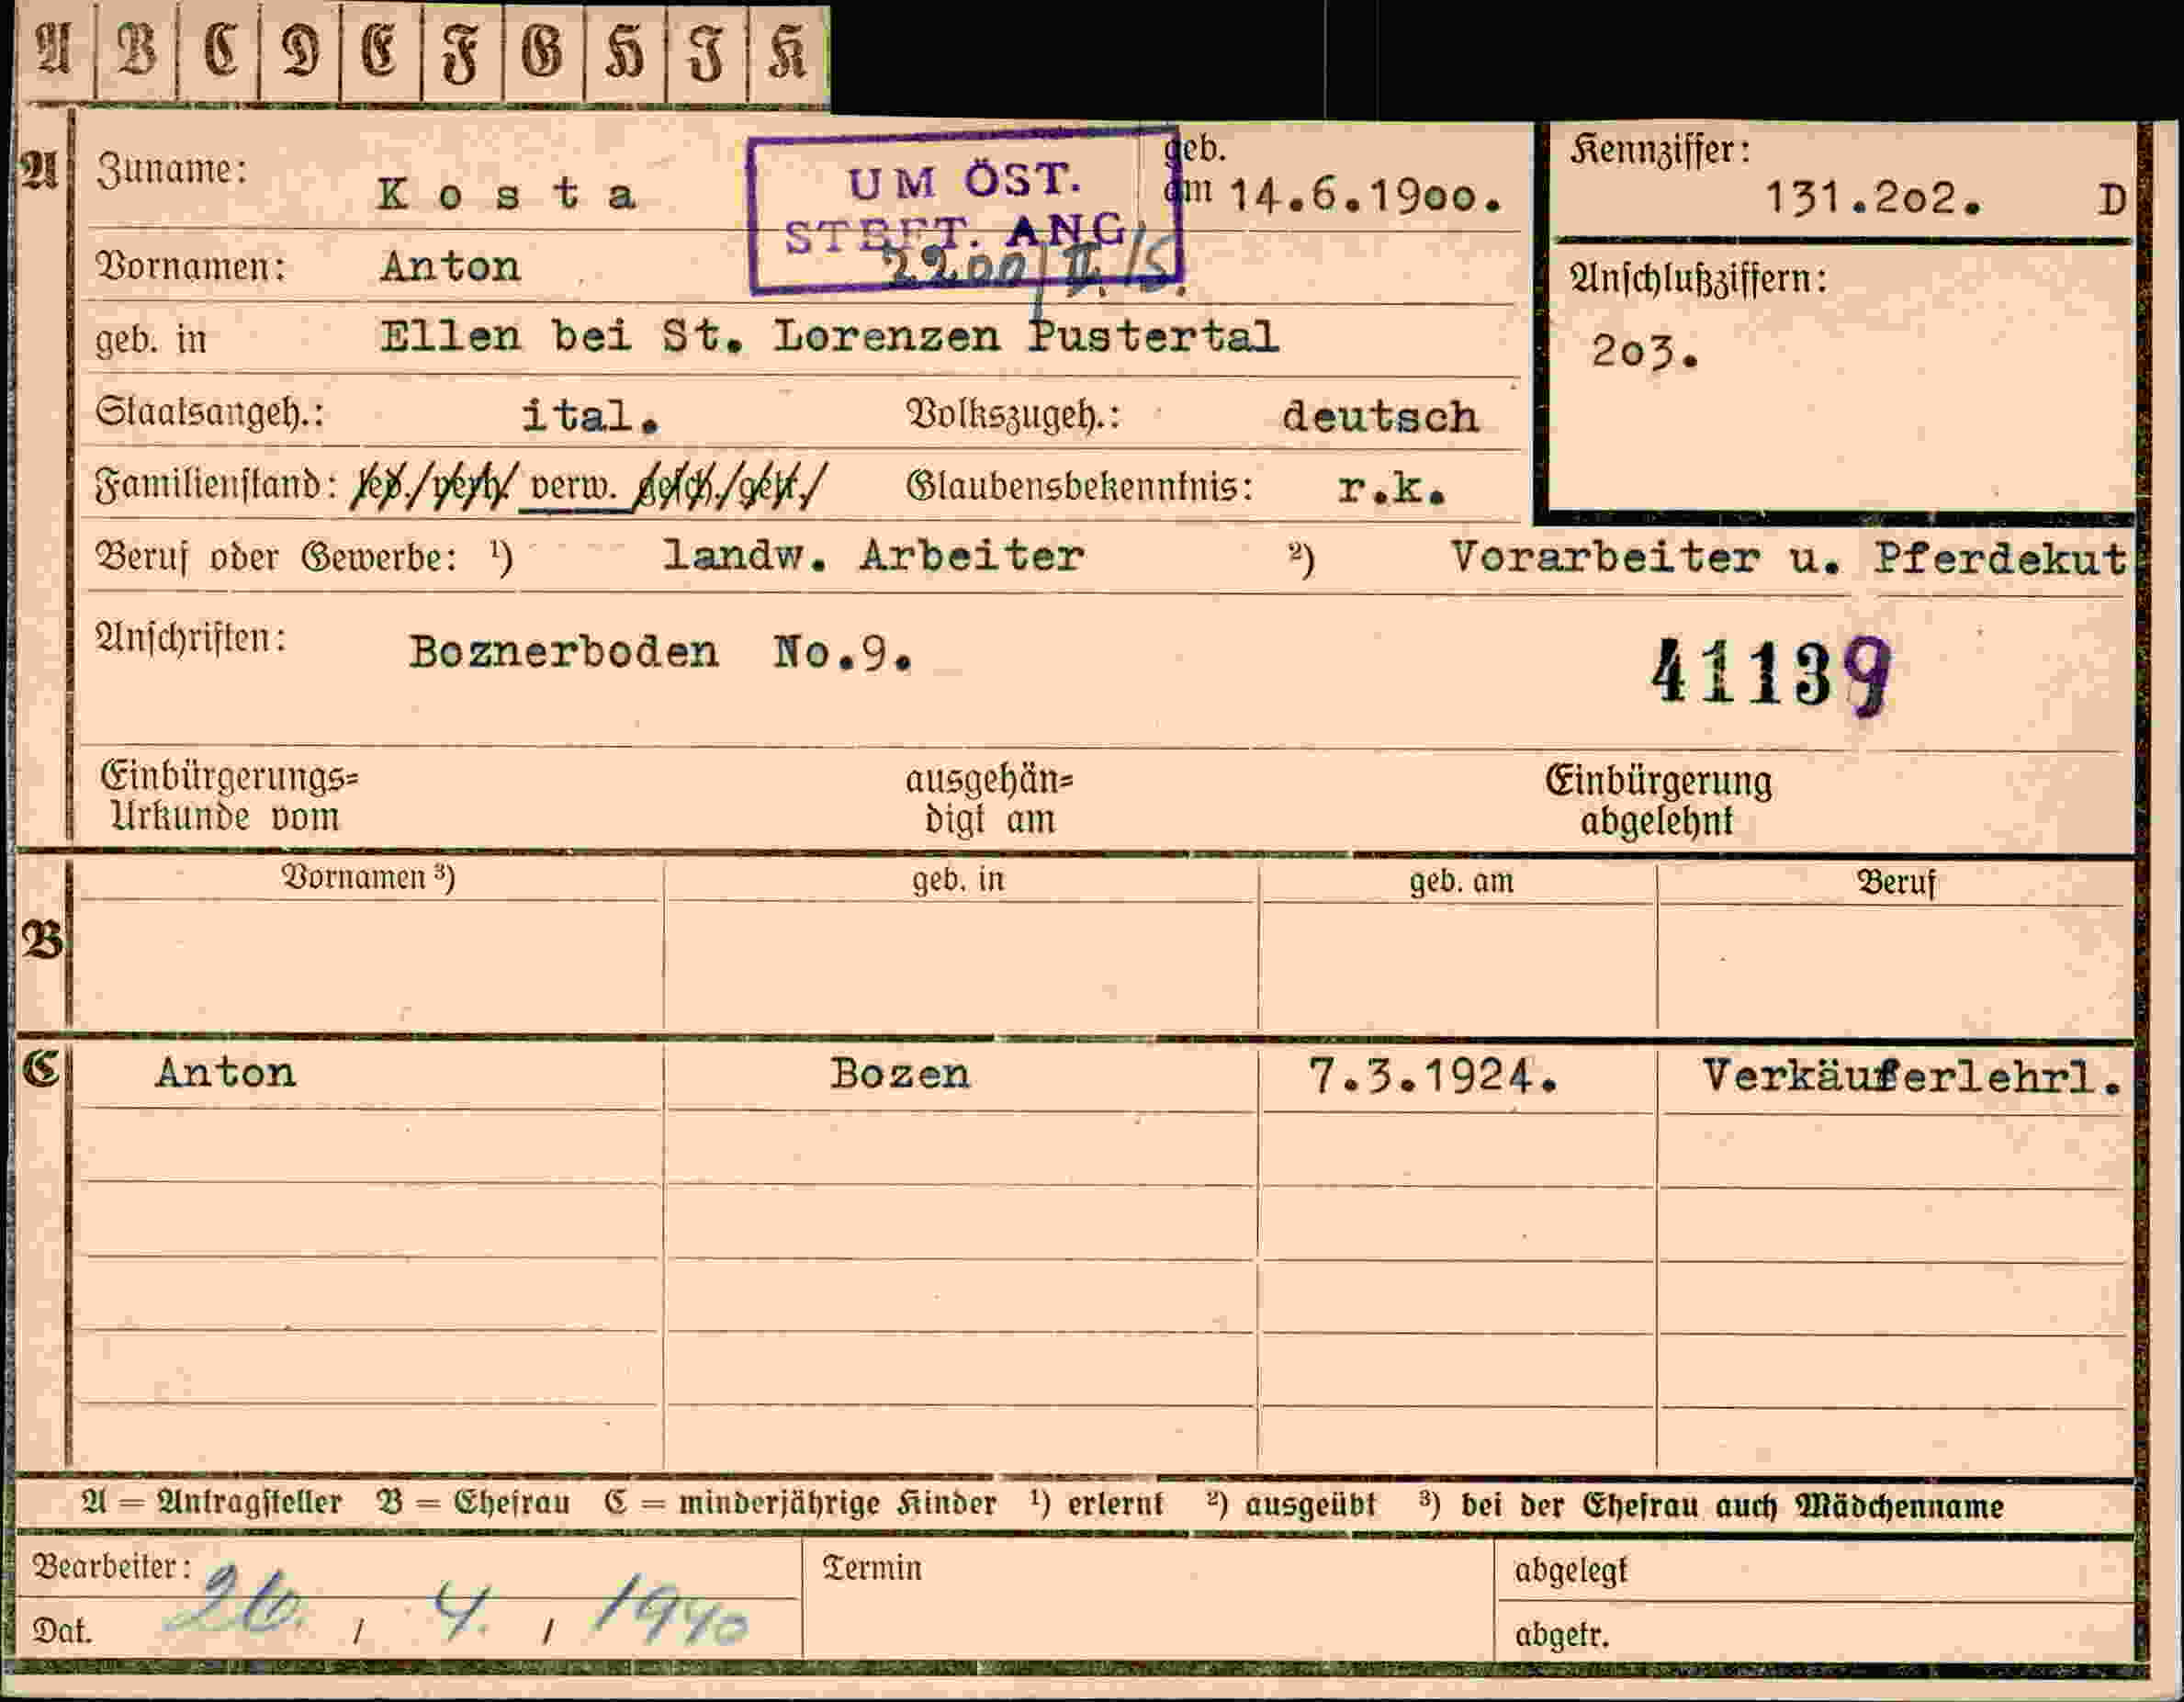 A B C D E F G H J K
A Zuname: Kosta geb. am 14.6.1900. Kennziffer: 131.202. D
UM ÖST.
STBFT. ANG.
2200/II/S.
Vornamen: Anton Anschlußziffern:
geb. in Ellen bei St. Lorenzen Pustertal 203.
Staatsangeh.: ital. Volkszugeh.: deutsch
Familienstand: led./verh./ verw. gesch./getr./ Glaubensbekenntnis: r.k.
Beruf oder Gewerbe: ¹) landw. Arbeiter ²) Vorarbeiter u. Pferdekut
Anschriften: Boznerboden No.9. 41139
Einbürgerungs= ausgehän= Einbürgerung
Urkunde vom digt am abgelehnt
Vornamen ³) geb. in geb. am Beruf
B
C Anton Bozen 7.3.1924. Verkäuferlehrl.
A = Antragsteller B = Ehefrau C = minderjährige Kinder ¹) erlernt ²) ausgeübt ³) bei der Ehefrau auch Mädchenname
Bearbeiter: Termin abgelegt
Dat. 26. / 4. / 1940 abgetr.